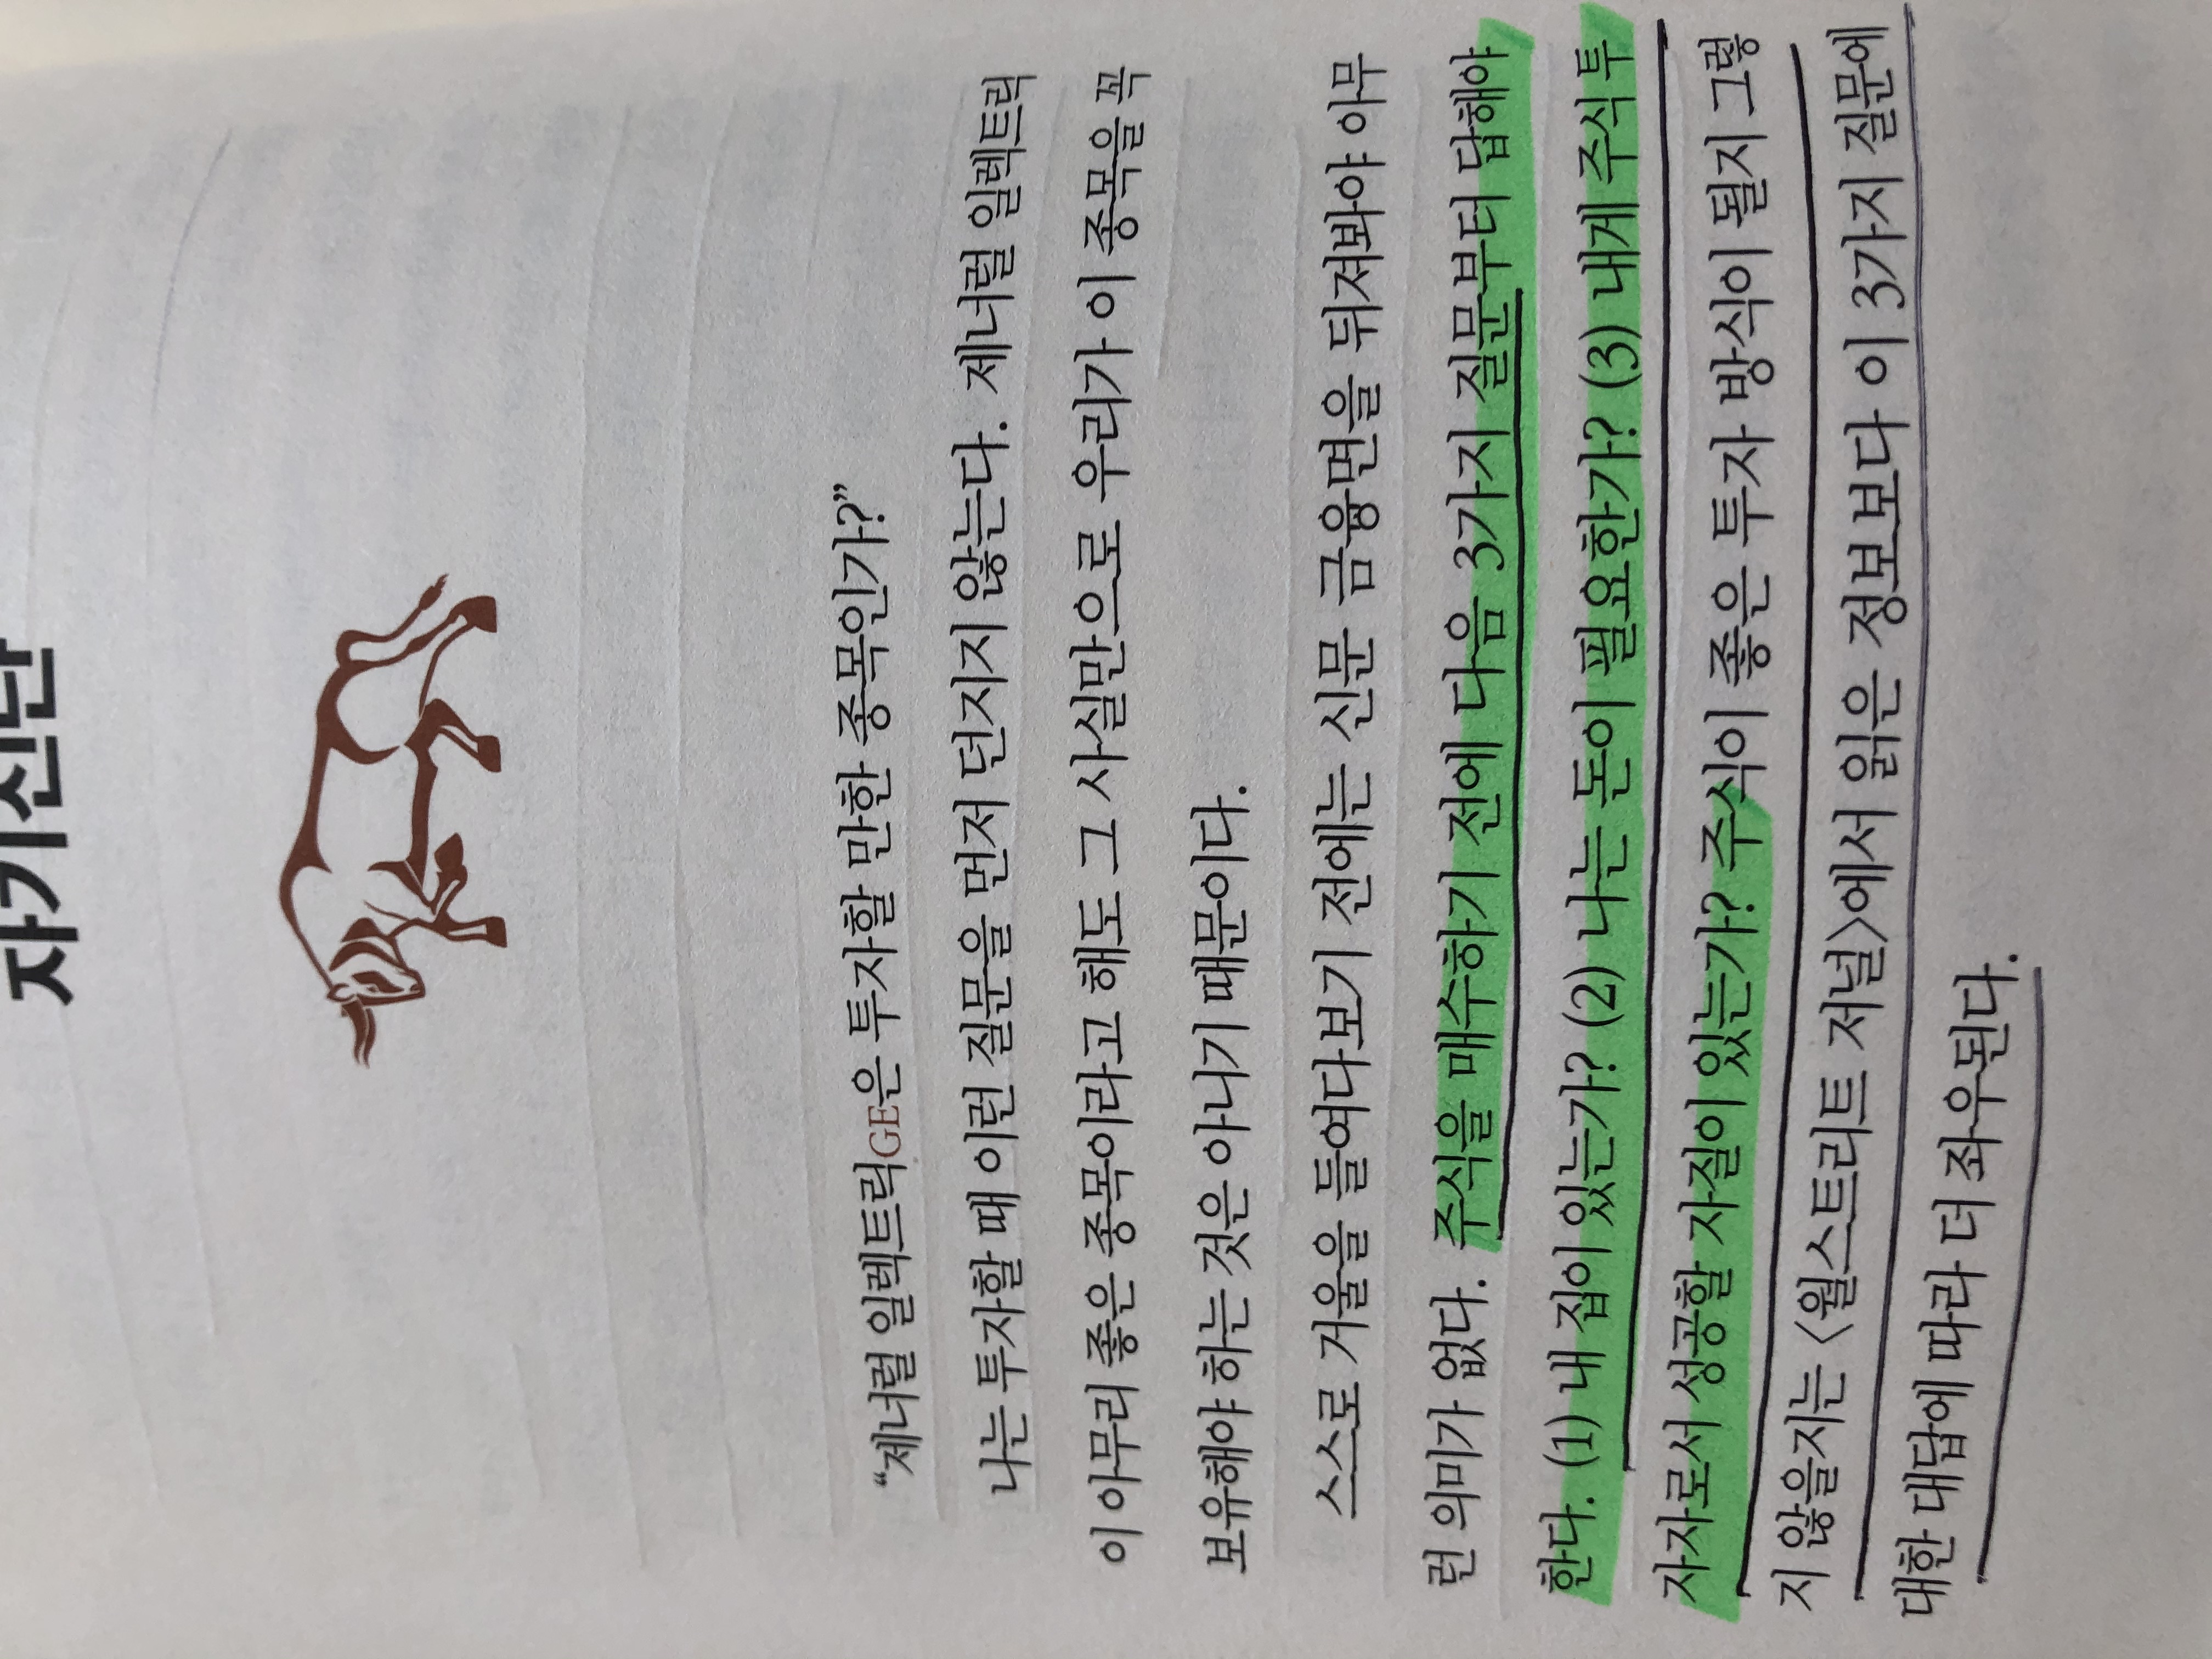 자기진단
“제너럴 일렉트릭GE은 투자할 만한 종목인가?”
나는 투자할 때 이런 질문을 먼저 던지지 않는다. 제너럴 일렉트릭
이 아무리 좋은 종목이라고 해도 그 사실만으로 우리가 이 종목을 꼭
보유해야 하는 것은 아니기 때문이다.
스스로 거울을 들여다보기 전에는 신문 금융면을 뒤져봐야 아무
런 의미가 없다. 주식을 매수하기 전에 다음 3가지 질문부터 답해야
한다. (1) 내 집이 있는가? (2) 나는 돈이 필요한가? (3) 내게 주식 투
자자로서 성공할 자질이 있는가? 주식이 좋은 투자 방식이 될지 그렇
지 않을지는 〈월스트리트 저널〉에서 읽은 정보보다 이 3가지 질문에
대한 대답에 따라 더 좌우된다.